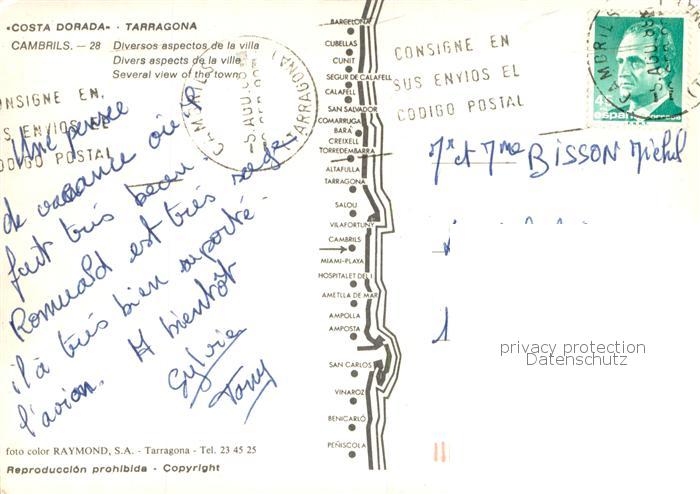 «COSTA DORADA» - TARRAGONA
CAMBRILS. — 28 Diversos aspectos de la villa
Divers aspects de la ville
Several view of the town
CONSIGNE EN
SUS ENVIOS EL
CODIGO POSTAL
NSIGNE EN
S ENVIOS EL
DIGO POSTAL
CAMBRILS
-5 AGO 88
(TARRAGONA)
CAMBRILS
-5 AGO 88
españa
correos
Une pensée
de vacance où il
fait très beau.
Romuald est très sage.
il a très bien suporté
l'avion. A bientôt
Sylvie
Tony
Mr et Mme BISSON Michel
BARCELONA
CUBELLAS
CUNIT
SEGUR DE CALAFELL
CALAFELL
SAN SALVADOR
COMARRUGA
BARÁ
CREIXELL
TORREDEMBARRA
ALTAFULLA
TARRAGONA
SALOU
VILAFORTUNY
CAMBRILS
MIAMI-PLAYA
HOSPITALET DEL I.
AMETLLA DE MAR
AMPOLLA
AMPOSTA
SAN CARLOS
VINAROZ
BENICARLÓ
PEÑISCOLA
privacy protection
Datenschutz
foto color RAYMOND, S.A. - Tarragona - Tel. 23 45 25
Reproducción prohibida - Copyright